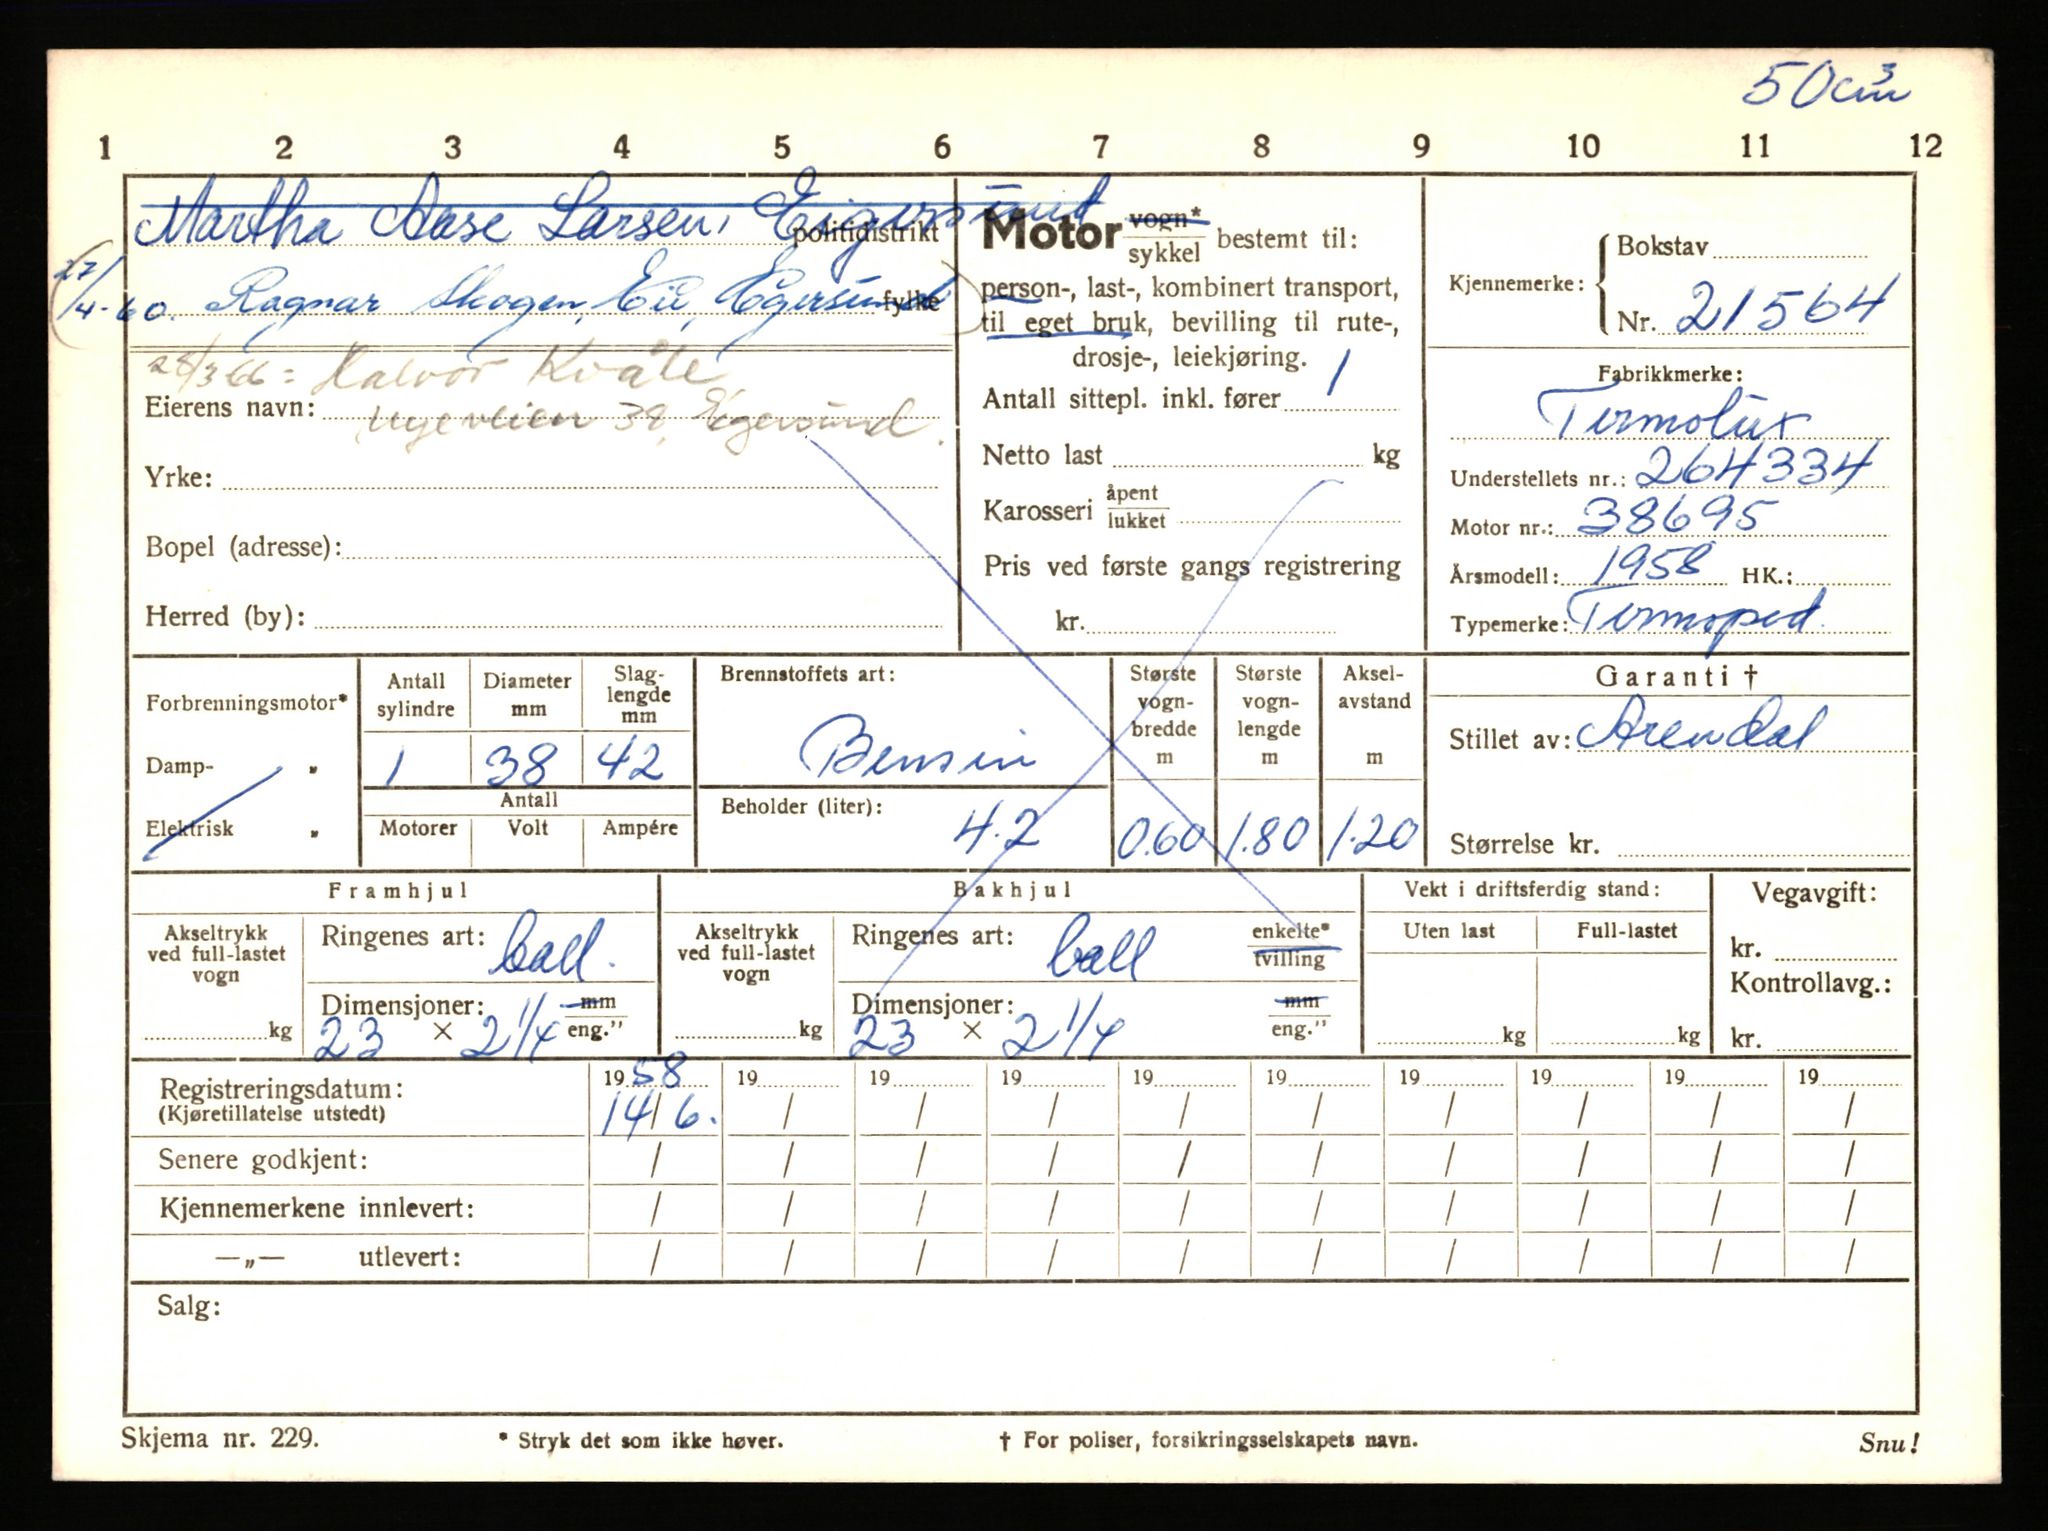 50 cm³
1 2 3 4 5 6 7 8 9 10 11 12
Martha Aase Larsen, Eigersund politidistrikt
27/4-60. Ragnar Skogen, Eie, Egersund fylke
28/3 66 = Halvor Kvåle
Eierens navn: Nyeveien 38, Egersund.
Yrke:
Bopel (adresse):
Herred (by):
Motor vogn*/sykkel bestemt til:
person-, last-, kombinert transport,
til eget bruk, bevilling til rute-,
drosje-, leiekjøring.
Antall sittepl. inkl. fører 1
Netto last kg
Karosseri åpent/lukket
Pris ved første gangs registrering
kr.
Kjennemerke: Bokstav
Nr. 21564
Fabrikkmerke:
Termolux
Understellets nr.: 264334
Motor nr.: 38695
Årsmodell: 1958 HK.:
Typemerke: Termoped.
Forbrenningsmotor*
Damp- „
Elektrisk „
Antall sylindre 1
Diameter mm 38
Slag-lengde mm 42
Antall
Motorer Volt Ampére
Brennstoffets art:
Bensin
Beholder (liter):
4.2
Største vogn-bredde m 0.60
Største vogn-lengde m 1.80
Aksel-avstand m 1.20
Garanti †
Stillet av: Arendal
Størrelse kr.
Framhjul
Akseltrykk ved full-lastet vogn kg
Ringenes art: ball.
Dimensjoner: mm/eng."
23 × 2 1/4
Bakhjul
Akseltrykk ved full-lastet vogn kg
Ringenes art: ball enkelte*/tvilling
Dimensjoner: mm/eng."
23 × 2 1/4
Vekt i driftsferdig stand:
Uten last Full-lastet
kg kg
Vegavgift:
kr.
Kontrollavg.:
kr.
Registreringsdatum: 1958 19 19 19 19 19 19 19 19 19
(Kjøretillatelse utstedt) 14/6. / / / / / / / / /
Senere godkjent: / / / / / / / / / /
Kjennemerkene innlevert: / / / / / / / / / /
—„— utlevert: / / / / / / / / / /
Salg:
Skjema nr. 229. * Stryk det som ikke høver. † For poliser, forsikringsselskapets navn. Snu!